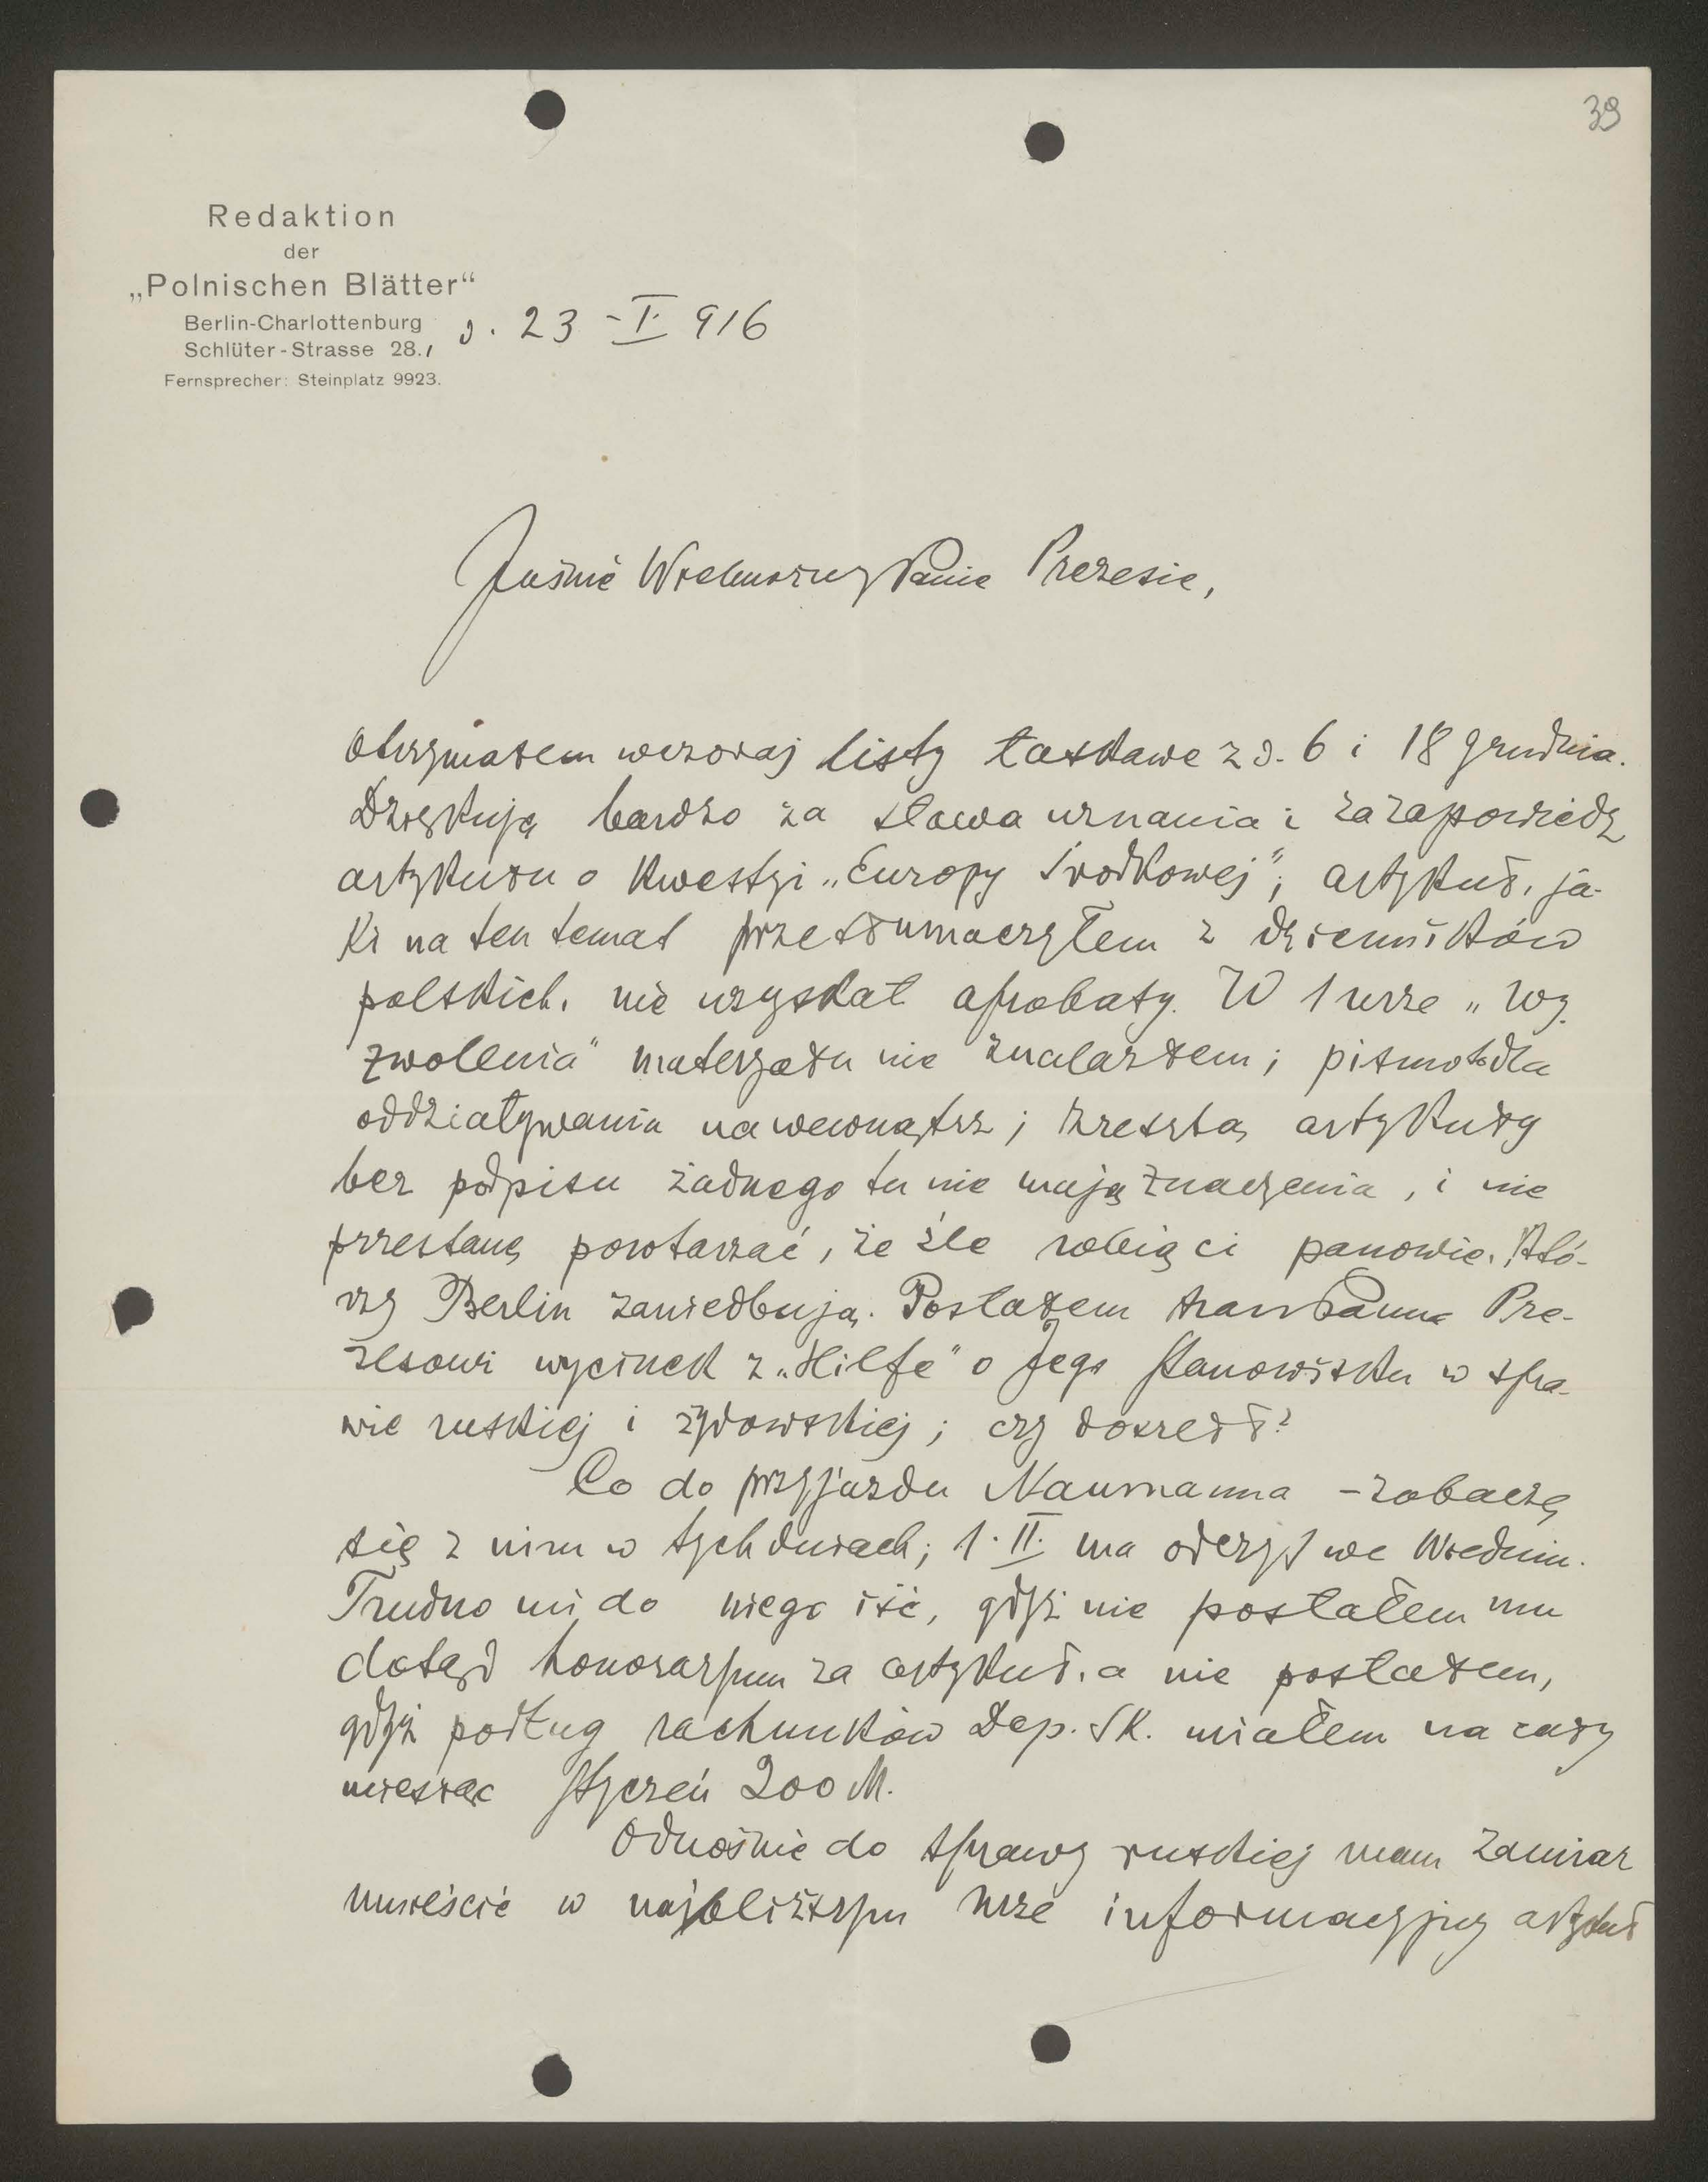 39
Redaktion
der
„Polnischen Blätter“
Berlin-Charlottenburg
Schlüter-Strasse 28.,
d. 23 - I. 916
Fernsprecher: Steinplatz 9923.
Jaśnie Wielmożny Panie Prezesie,
otrzymałem wczoraj listy łaskawe z d. 6 i 18 grudnia.
Dziękuję bardzo za słowa uznania i za zapowiedź
artykułu o kwestyi „Europy Środkowej“; artykuł, ja-
ki na ten temat przetłumaczyłem z dzienników
polskich, nie uzyskał aprobaty. W 1 nrze „Wy-
zwolenia“ materyału nie znalazłem; pismo to dla
oddziaływania na wewnątrz; zresztą artykuły
bez podpisu żadnego tu nie mają znaczenia, i nie
przestanę powtarzać, że źle robią ci panowie, któ-
rzy Berlin zaniedbują. Posłałem Panu Pre-
zesowi wycinek z „Hilfe“ o Jego stanowisku w spra-
wie ruskiej i żydowskiej; czy doszedł?
Co do przyjazdu Naumanna - zobaczę
się z nim w tych dniach; 1. II. ma odczyt we Wiedniu.
Trudno mi do niego iść, gdyż nie posłałem mu
dotąd honoraryum za artykuł, a nie posłałem,
gdyż podług rachunków Dep. SK. miałem na cały
miesiąc styczeń 200 M.
Odnośnie do sprawy ruskiej mam zamiar
umieścić w najbliższym nrze informacyjny artykuł